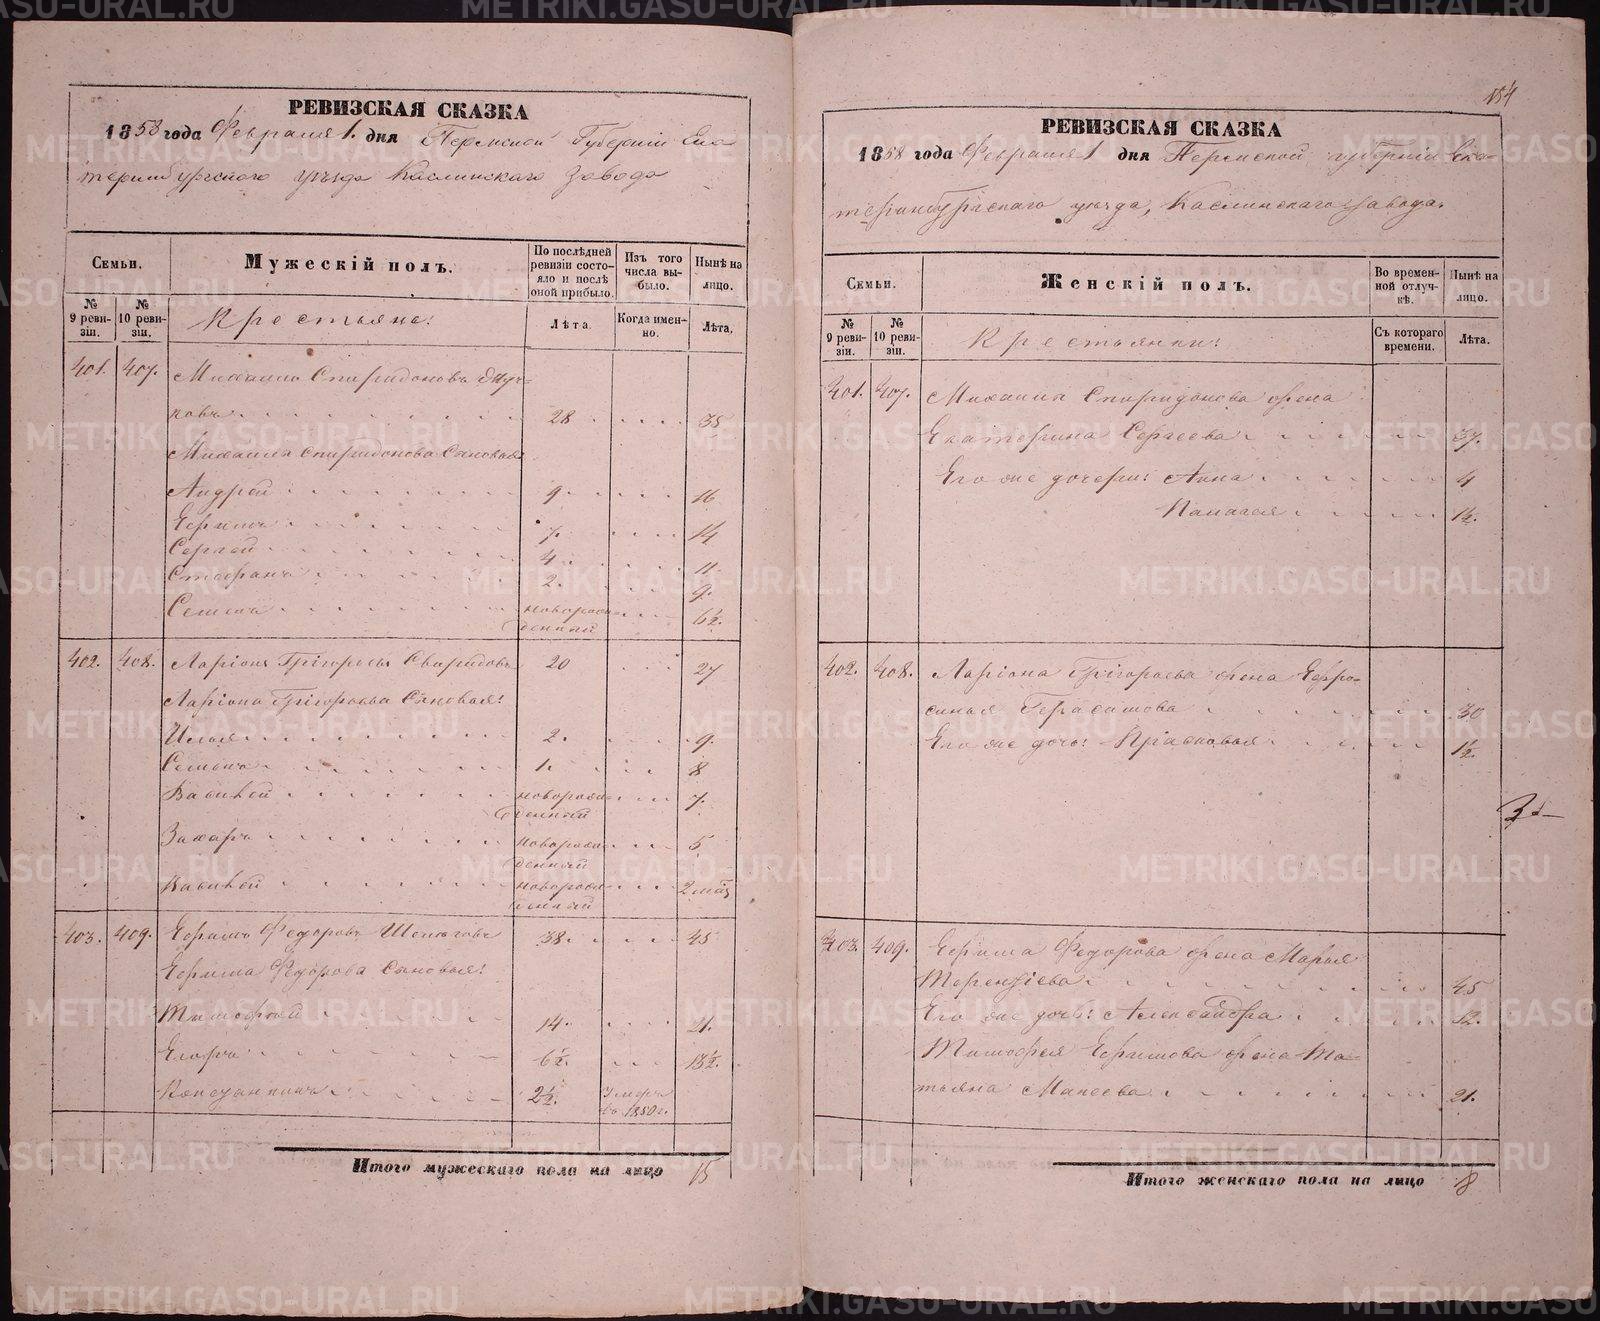 РЕВИЗСКАЯ СКАЗКА
1858 года Февраля 1. дня Пермской Губерніи Ека
теринбургского уезда Каслинскаго завода
Семьи.
Мужескій полъ.
По послѣдней ревизіи состояло и послѣ оной прибыло.
Изъ того числа выбыло.
Нынѣ на лицо.
№ 9 ревизіи.
№ 10 ревизіи.
Крестьяне:
Лѣта.
Когда именно.
Лѣта.
401. 407. Михаило Спиридоновъ
ковъ 28 35
Михаила Спиридонова Сыновья
Андрей 9. 16
Ефимъ 7. 14
Сергей 4. 11
Стефанъ 2. 9.
Семенъ новорож-
денный 6½.
402. 408. Ларіонъ Григорьевъ Свиридовъ 20 27
Ларіона Григорьева Сыновья:
Илья 2. 9.
Семенъ 1. 8
Василей новорож-
денный 7.
Захаръ новорож-
денный 5
Василей новорож-
денный 2 мѣс
403. 409. Ефимъ Федоровъ 38. 45
Ефима Федорова Сыновья:
Тимофей 14. 21.
Егоръ 6½. 13½.
Констянтинъ 2½. Умеръ
въ 1850 г.
Итого мужескаго пола на лицо 15
154
РЕВИЗСКАЯ СКАЗКА
1858 года Февраля 1 дня Пермской губерніи Ека-
теринбургскаго уезда, Каслинскаго завода.
Семьи.
Женскій полъ.
Во временной отлучкѣ.
Нынѣ на лицо.
№ 9 ревизіи.
№ 10 ревизіи.
Крестьянки:
Съ котораго времени.
Лѣта.
401. 407. Михаила Спиридонова жена
Екатерина Сергеева 37.
Его же дочери: Анна 4
Палагея 1½.
402. 408. Ларіона Григорьева жена Ефро-
синья Герасимова 30
Его же дочь: Прасковья 1½.
403. 409. Ефима Федорова жена Марья
Терентіева 45
Его же дочь: Александра 12.
Тимофея Ефимова жена Та-
тьяна Макеева 21.
Итого женскаго пола на лицо 8
METRIKI.GASO-URAL.RU